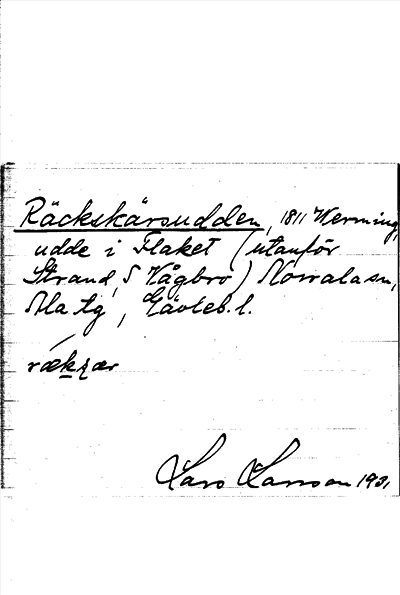 Räckskärsudden, 1811 Werming,
udde i Flaket (utanför
Strand, S Vågbro) Norralasn,
Ala tg, Gävleb. l.
rækʂær
Lars Larsson 1931